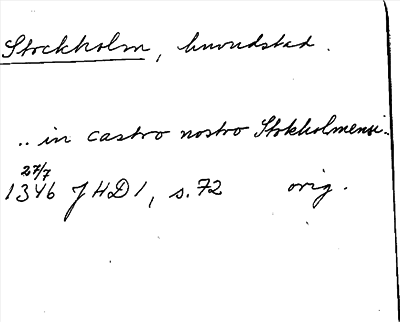 Stockholm, huvudstad.
.. in castro nostro Stokholmensi..
27/7
1346 JHD 1, s. 72 orig.